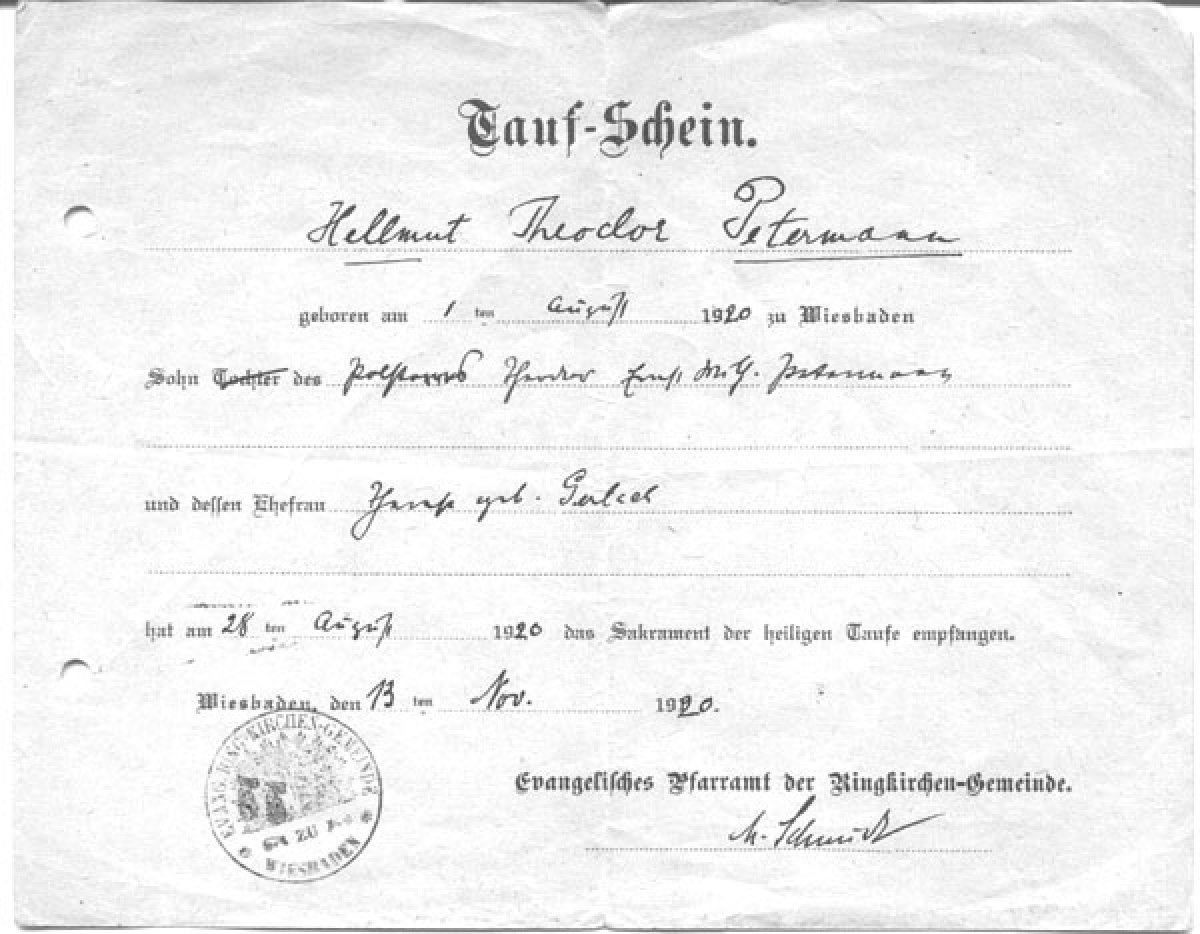 Tauf-Schein.
Hellmut Theodor Petermann
geboren am 1 ten August 1920 zu Wiesbaden
Sohn Tochter des Theodor Ernst Wilh. Petermann
und dessen Ehefrau geb.
hat am 28 ten August 1920 das Sakrament der heiligen Taufe empfangen.
Wiesbaden, den 13 ten Nov. 1920.
Evangelisches Pfarramt der Ringkirchen-Gemeinde.
M. Schmidt
EVANG. RINGKIRCHEN-GEMEINDE
ZU
WIESBADEN